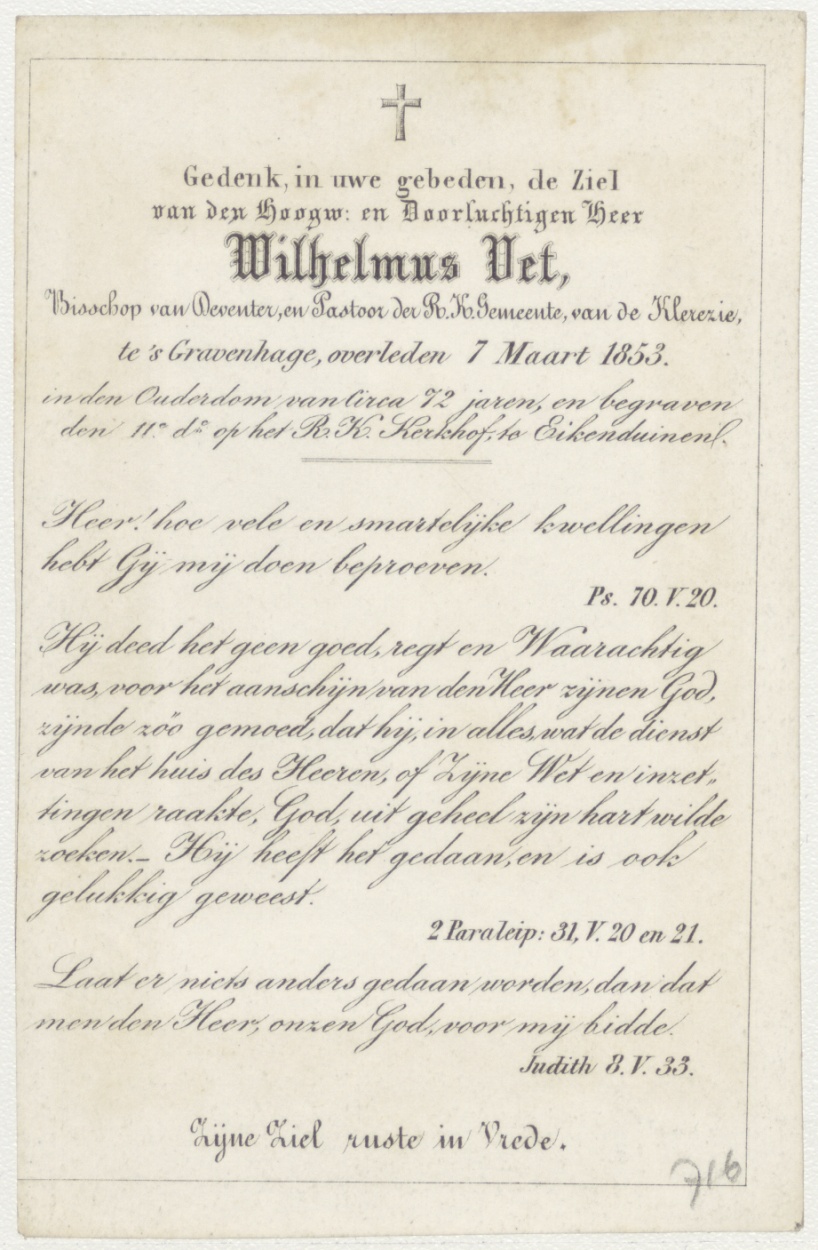 Gedenk, in uwe gebeden, de Ziel
van den Hoogw: en Doorluchtigen Heer
Wilhelmus Vet,
Bisschop van Deventer, en Pastoor der R. K. Gemeente, van de Klerezie,
te 's Gravenhage, overleden 7 Maart 1853.
in den Ouderdom van Circa 72 jaren, en begraven
den 11e do op het R. K. Kerkhof, te Eikenduinen.
Heer! hoe vele en smartelijke kwellingen
hebt Gij mij doen beproeven.
Ps. 70. V. 20.
Hij deed het geen goed, regt en Waarachtig
was, voor het aanschijn van den Heer zijnen God,
zijnde zóo gemoed, dat hij, in alles, wat de dienst
van het huis des Heeren, of Zijne Wet en inzet„
tingen raakte, God, uit geheel zijn hart wilde
zoeken._ Hij heeft het gedaan, en is ook
gelukkig geweest.
2 Paraleip: 31, V. 20 en 21.
Laat er niets anders gedaan worden, dan dat
men den Heer, onzen God, voor mij bidde.
Judith 8. V. 33.
Zijne Ziel ruste in Vrede.
716